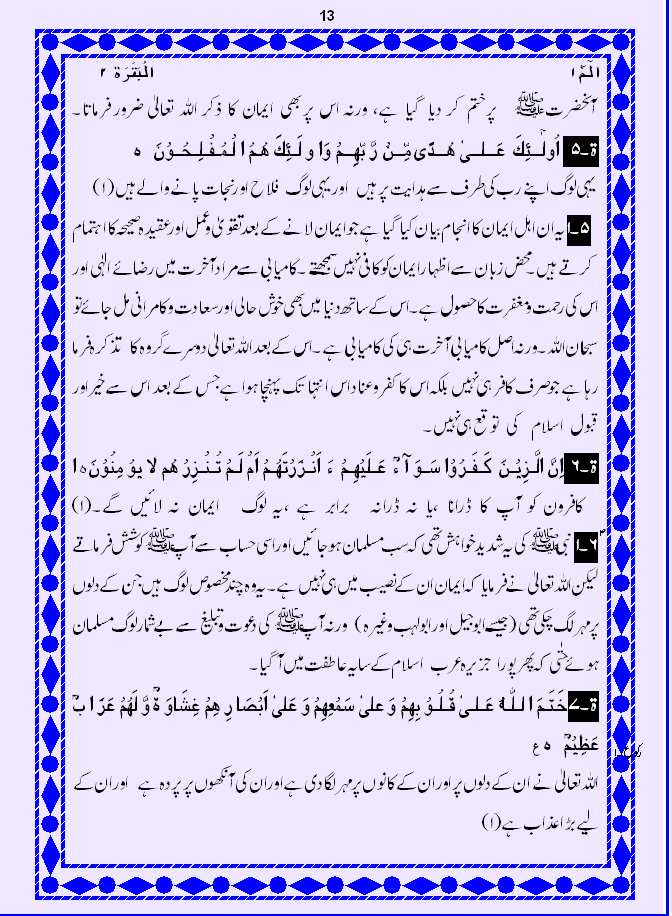 13
الٓمّٓ ۱ الْبَقَرَة ۲
آنحضرت ﷺ پر ختم کر دیا گیا ہے، ورنہ اس پر بھی ایمان کا ذکر اللہ تعالیٰ ضرور فرماتا۔
ۃ۔۵ اُولٰٓئِکَ عَلـیٰ ھُـدًی مِّنْ رَّبِّھِـمْ وَاُ ولٰٓـئِکَ ھُمُ الْـمُـفْـلِـحُـوْنَ ہ
یہی لوگ اپنے رب کی طرف سے ہدایت پر ہیں اور یہی لوگ فلاح اور نجات پانے والے ہیں (۱)
۵۔۱ یہ ان اہل ایمان کا انجام بیان کیا گیا ہے جو ایمان لانے کے بعد تقویٰ و عمل اور عقیدہ صحیحہ کا اہتمام
کرتے ہیں۔ محض زبان سے اظہار ایمان کو کافی نہیں سمجھتے ۔ کامیابی سے مراد آخرت میں رضائے الٰہی اور
اس کی رحمت و مغفرت کا حصول ہے ۔ اس کے ساتھ دنیا میں بھی خوش حالی اور سعادت و کامرانی مل جائے تو
سبحان اللہ ۔ ورنہ اصل کامیابی آخرت ہی کی کامیابی ہے ۔ اس کے بعد اللہ تعالیٰ دوسرے گروہ کا تذکرہ فرما
رہا ہے جو صرف کافر ہی نہیں بلکہ اس کا کفر و عناد اس انتہا تک پہنچا ہوا ہے جس کے بعد اس سے خیر اور
قبول اسلام کی توقع ہی نہیں ۔
ۃ۔۶ اِنَّ الَّذِیْـنَ کَـفَـرُوْا سَـوَ آءٌ عَـلَـیْـھِـمْ ءَ اَنْـذَرْتَھُـمْ اَمْ لَـمْ تُـنْـذِرْ ھُم لَا یُؤْ مِنُوْنَ ہ ۱
کافروں کو آپ کا ڈرانا ،یا نہ ڈرانہ برابر ہے ،یہ لوگ ایمان نہ لائیں گے ۔(۱)
۶۔۱ نبی ﷺ کی یہ شدید خواہش تھی کہ سب مسلمان ہو جائیں اور اسی حساب سے آپ ﷺ کوشش فرماتے
لیکن اللہ تعالیٰ نے فرمایا کہ ایمان ان کے نصیب میں ہی نہیں ہے ۔ یہ وہ چند مخصوص لوگ ہیں جن کے دلوں
پر مہر لگ چکی تھی (جیسے ابو جہل اور ابولہب وغیرہ) ورنہ آپ ﷺ کی دعوت و تبلیغ سے بے شمار لوگ مسلمان
ہوئے حتٰی کہ پھر پورا جزیرہ عرب اسلام کے سایہ عاطفت میں آ گیا ۔
ۃ۔۷ خَـتَـمَ ا لـلّٰـہُ عَـلـیٰ قُـلُـوْ بِھِمْ وَ عَلیٰ سَـمْعِھِمْ وَ عَلیٰ اَبْصَا رِ ھِمْ غِشَاوَ ۃٌ وَّ لَھُمْ عَذَ ا بٌ
عَظِیْمٌ ہ ع
اللہ تعالیٰ نے ان کے دلوں پر اور ان کے کانوں پر مہر لگا دی ہے اور ان کی آنکھوں پر پردہ ہے اور ان کے
لیے بڑا عذاب ہے (۱)